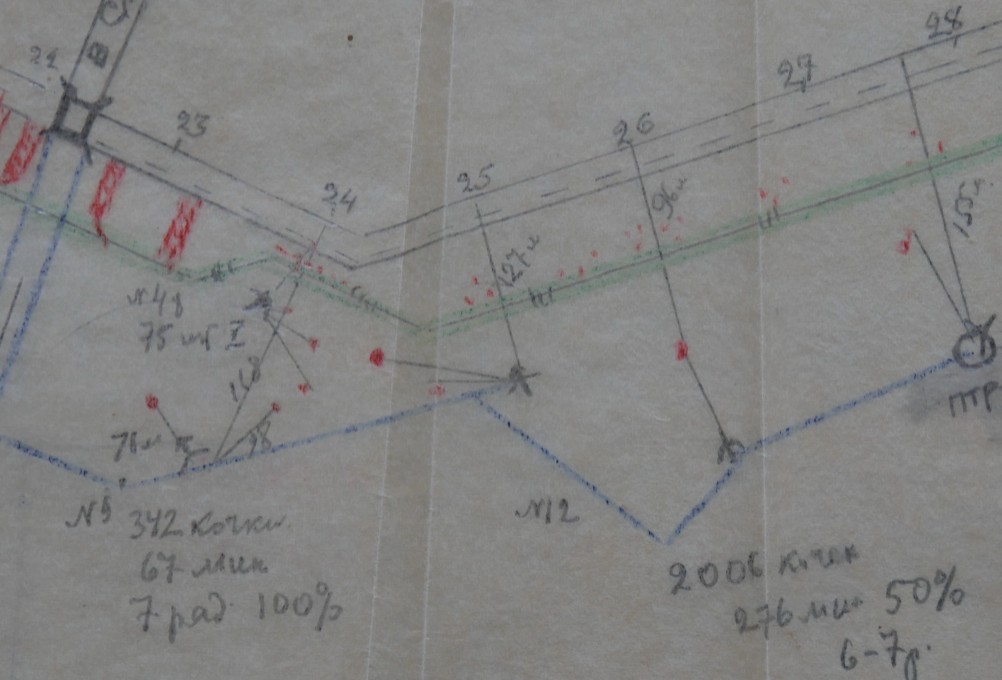 В
22
23
24
25
26
27
28
127м
96м
155м.
75 шт I
168
98
76м
ПТР
N5
342 кочки
67 мин
7 рад 100%
N12
2006 кочек
276 мин 50%
6-7р.